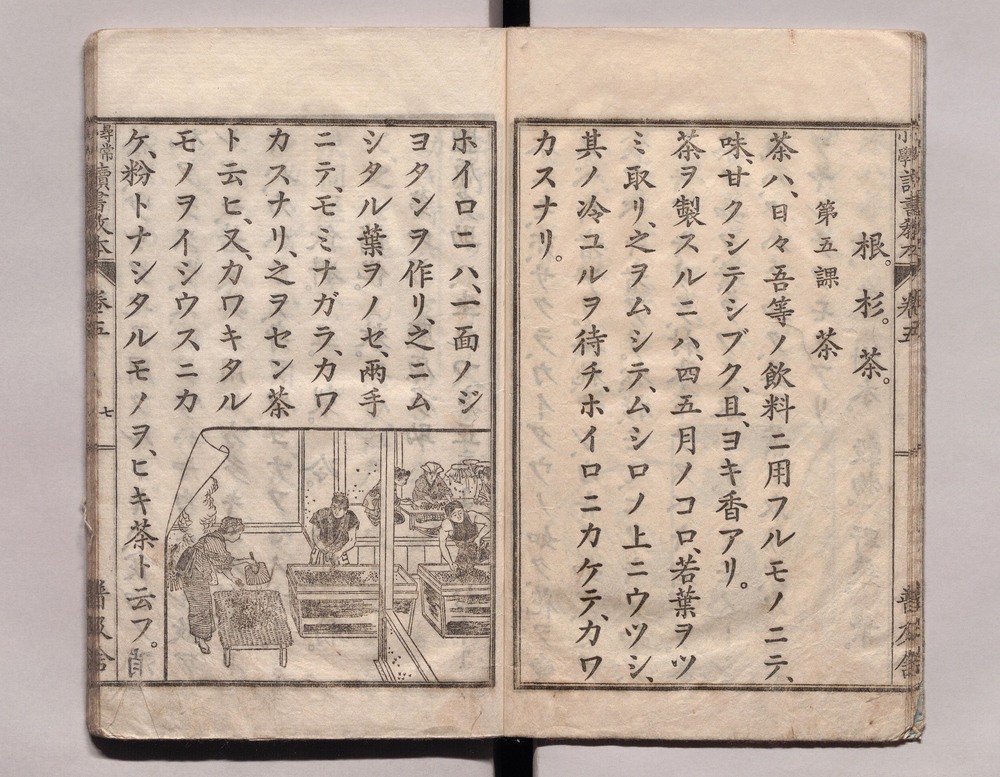 根。杉。茶。
第五課 茶
茶ハ、日々吾等ノ飲料ニ用フルモノニテ、
味、甘クシテシブク、且、ヨキ香アリ。
茶ヲ製スルニハ、四五月ノコロ、若葉ヲツ
ミ取リ、之ヲムシテ、ムシロノ上ニウツシ、
其ノ冷ユルヲ待チ、ホイロニカケテ、カワ
カスナリ。
ホイロニハ、一面ノジ
ヨタンヲ作リ、之ニム
シタル葉ヲノセ、兩手
ニテ、モミナガラ、カワ
カスナリ、之ヲセン茶
ト云ヒ、又、カワキタル
モノヲイシウスニカ
ケ、粉トナシタルモノヲ、ヒキ茶ト云フ。
尋常
讀書教本
卷五
七
普及舍
小學讀書教本
卷五